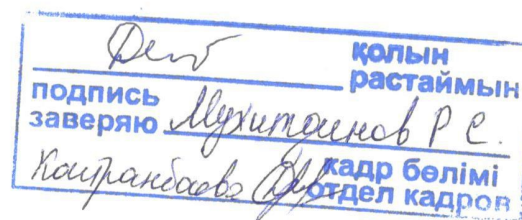 қолын
растаймын
подпись
заверяю Мухитдинов Р С.
кадр бөлімі
отдел кадров